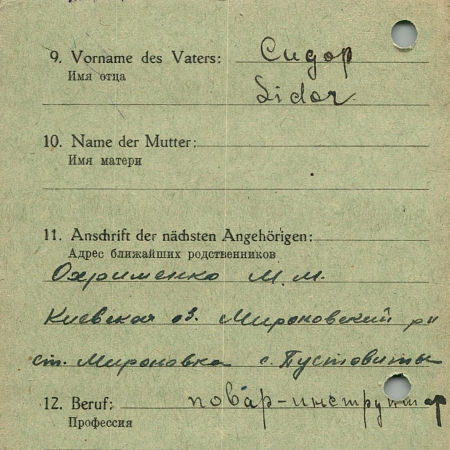 9. Vorname des Vaters: Сидор
Имя отца
Sidor
10. Name der Mutter:
Имя матери
11. Anschrift der nächsten Angehörigen:
Адрес ближайших родственников
Охрименко М. М.
Киевская оз. Мироновский р-н
ст. Мироновка с. Пустовиты
12. Beruf: повар-инструктор
Профессия